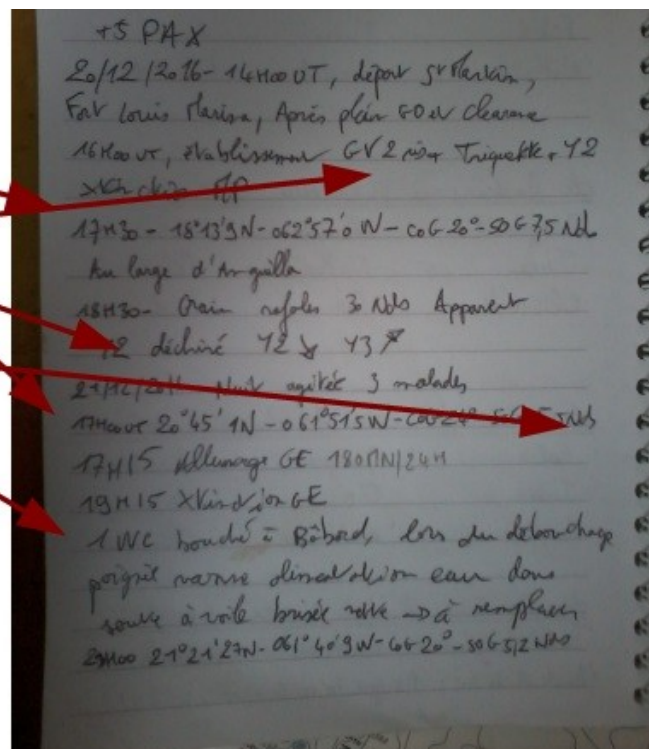 +5 PAX
20/12/2016- 14H00 UT, départ St Martin,
Fort Louis Marina, Après plein GO et
16H00 UT, établissement GV 2 ris + Trinquette + Y2
17H30 - 18°13'9N - 062°57'0 W - COG 20° - SOG 7,5 Nds
Au large d'Anguilla
18H30- Grain rafales 30 Nds Apparent
Y2 déchiré Y2 ↘ Y3 ↗
Nuit agitée 3 malades
17H00 UT 20°45'1N - 061°51'5W - COG 24°
17H15 Allumage GE 180MN/24H
19H15 Xtinction GE
1 WC bouché à Bâbord, lors du débouchage
poignée vanne eau dans
soute à voile brisée → à remplacer
21°21'27N - 061°40'9W - COG 20° - SOG 5,2 Nds